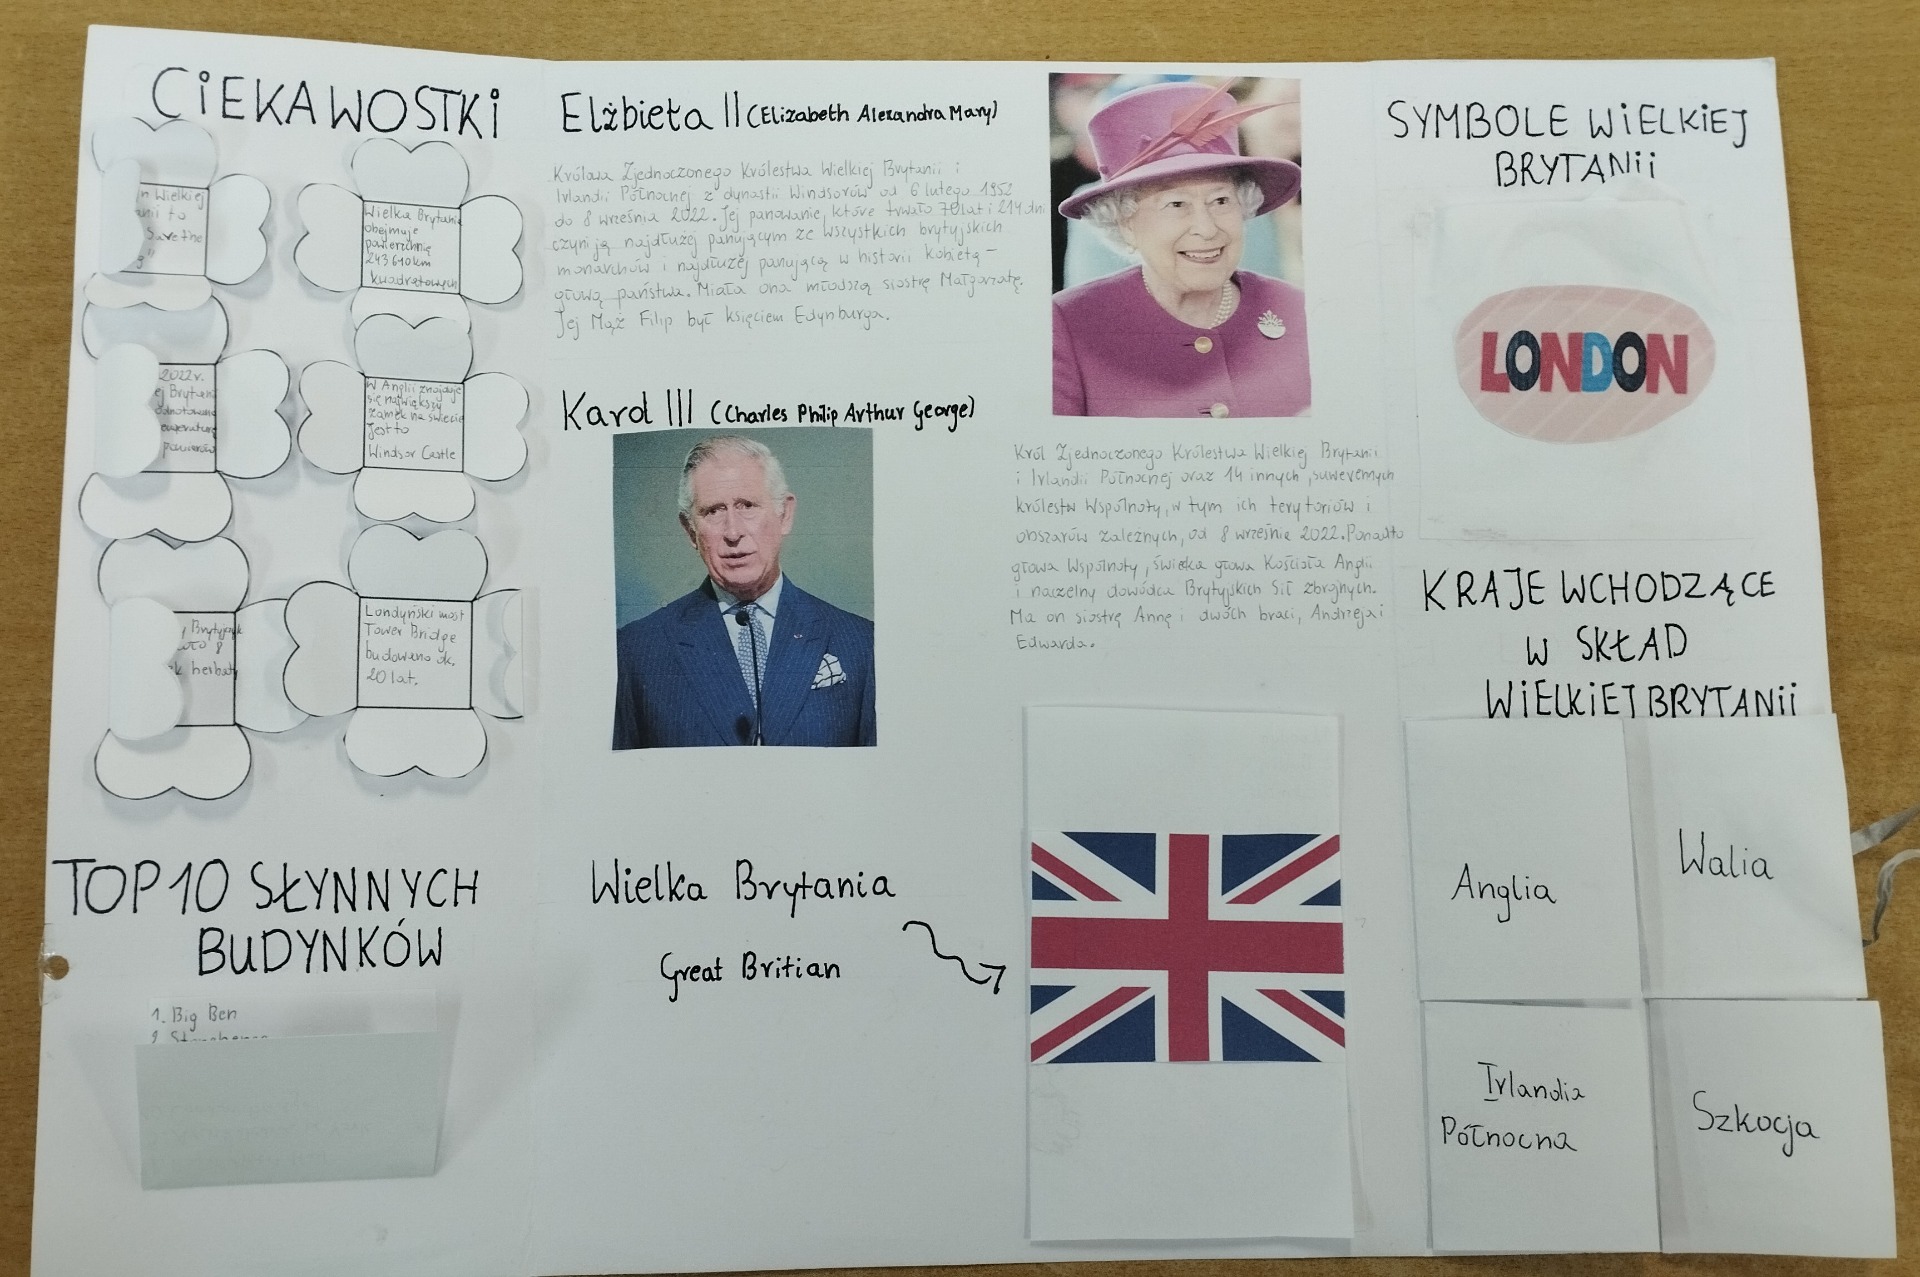 CIEKAWOSTKI
n Wielkiej
to
Save the
g"
Wielka Brytania
obejmuje
powierzchnię
243 610 km
kwadratowych
2022r.
ej Brytani
W Anglii znajduje
się największy
zamek na świecie
Jest to
Windsor Castle
Brytyjczyk
8
k herbaty
Londyński most
Tower Bridge
budowano ok.
20 lat.
TOP 10 SŁYNNYCH
BUDYNKÓW
1. Big Ben
2
Elżbieta II (Elizabeth Alexandra Mary)
Królowa Zjednoczonego Królestwa Wielkiej Brytanii i
Irlandii Północnej z dynastii Windsorów od 6 lutego 1952
do 8 września 2022. Jej panowanie, które trwało 70 lat i 214 dni
czyni ją najdłużej panującym ze wszystkich brytyjskich
monarchów i najdłużej panującą w historii kobietą -
głową państwa. Miała ona młodszą siostrę Małgorzatę.
Jej Mąż Filip był księciem Edynburga.
Karol III (Charles Philip Arthur George)
Król Zjednoczonego Królestwa Wielkiej Brytanii
i Irlandii Północnej oraz 14 innych, suwerennych
królestw Wspólnoty, w tym ich terytoriów i
obszarów zależnych, od 8 września 2022. Ponadto
głowa Wspólnoty, świecka głowa Kościoła Anglii
i naczelny dowódca Brytyjskich Sił zbrojnych.
Ma on siostrę Annę i dwóch braci, Andrzeja i
Edwarda.
Wielka Brytania
Great Britian
SYMBOLE WIELKIEJ
BRYTANII
LONDON
KRAJE WCHODZĄCE
W SKŁAD
WIELKIEJ BRYTANII
Anglia
Walia
Irlandia
Północna
Szkocja